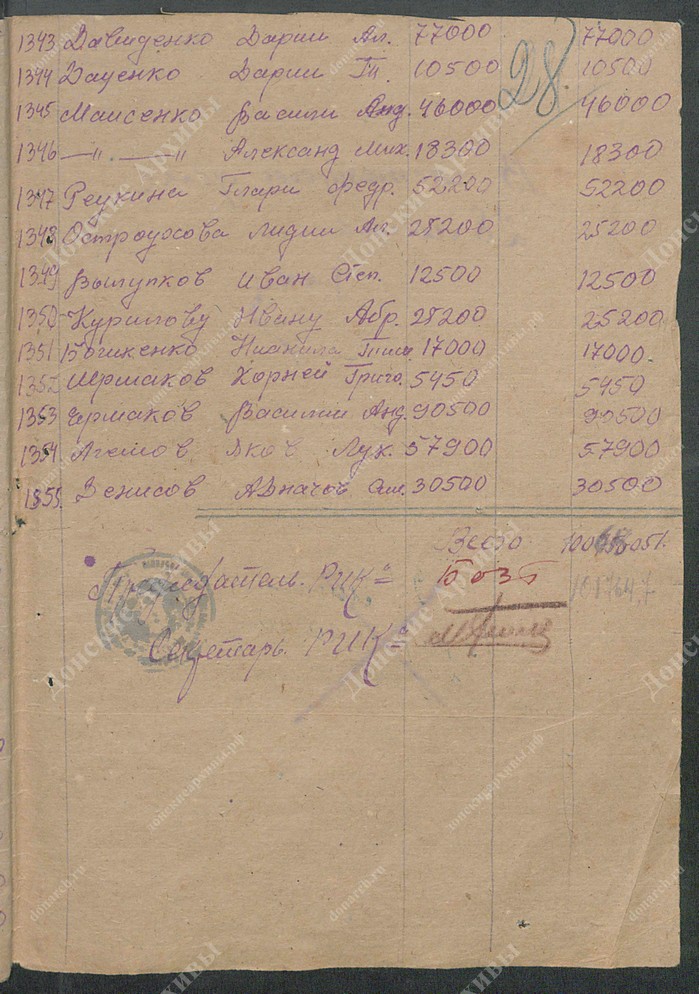 28
1343 Давиденко Дарии Ал. 77000 77000
1344 Даценко Дарии Гн. 10500 10500
1345 Маисенко Васили Анд. 46000 46000
1346 —"— . —"— Александ Мих. 18300 18300
1347 Реукина Глари Федр. 52200 52200
1348 Остроусова Лидии Ал. 25200 25200
1349 Вылупков Иван Степ. 12500 12500
1350 Курилову Ивану Абр. 25200 25200
1351 Божкенко 17000 17000
1352 Корней Григо. 5450 5450
1353 Ермаков Василии Анд. 90500 90500
1354 Агемов Яков Лук. 57900 57900
1355 Денисов 30500 30500
Всего
Председатель. РИК=
Секретарь. РИК=
Донские Архивы
донскиеархивы.рф
donarch.ru